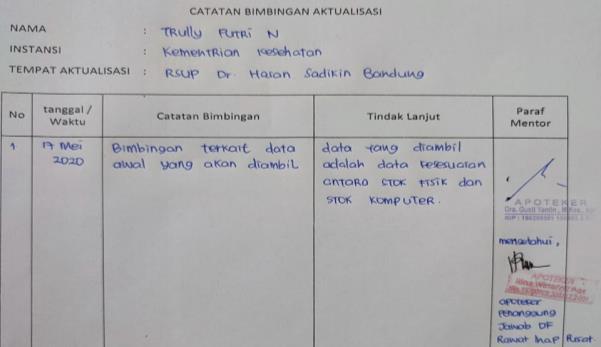 CATATAN BIMBINGAN AKTUALISASI
NAMA : TRully PUTRi N
INSTANSI : KementRian Kesehatan
TEMPAT AKTUALISASI : RSUP Dr. Hasan Sadikin Bandung
No
tanggal /
Waktu
Catatan Bimbingan
Tindak Lanjut
Paraf
Mentor
1
17 Mei
2020
Bimbingan terkait data
awal yang akan diambil
data yang diambil
adalah data kesesuaian
antara STOK FISIK dan
STOK KOMPUTER.
APOTEKER
Dra. Gusti Yantin
mengetahui,
APOTEKER
apoteker
Penanggung
Jawab DF
Rawat Inap Pusat